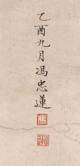 乙酉九月馮忠蓮